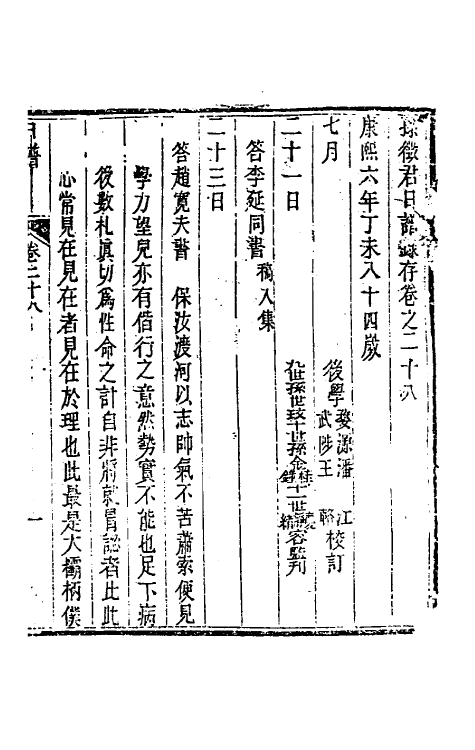 孫徵君日譜錄存卷之二十八
康熙六年丁未八十四歲
七月
後學婺源潘江
武陟王
校訂
二十一日
九世孫世玟十世孫
十一世
容監刋
答李延同書 稿入集
二十三日
答趙寬夫書 保汝渡河以志帥氣不苦蕭索便見
學力望兒亦有偕行之意然勢實不能也足下病
後數札眞切爲性命之計自非將就冐認者比此
心常見在見在者見在於理也此最是大欛柄僕
日譜
卷二十八
一